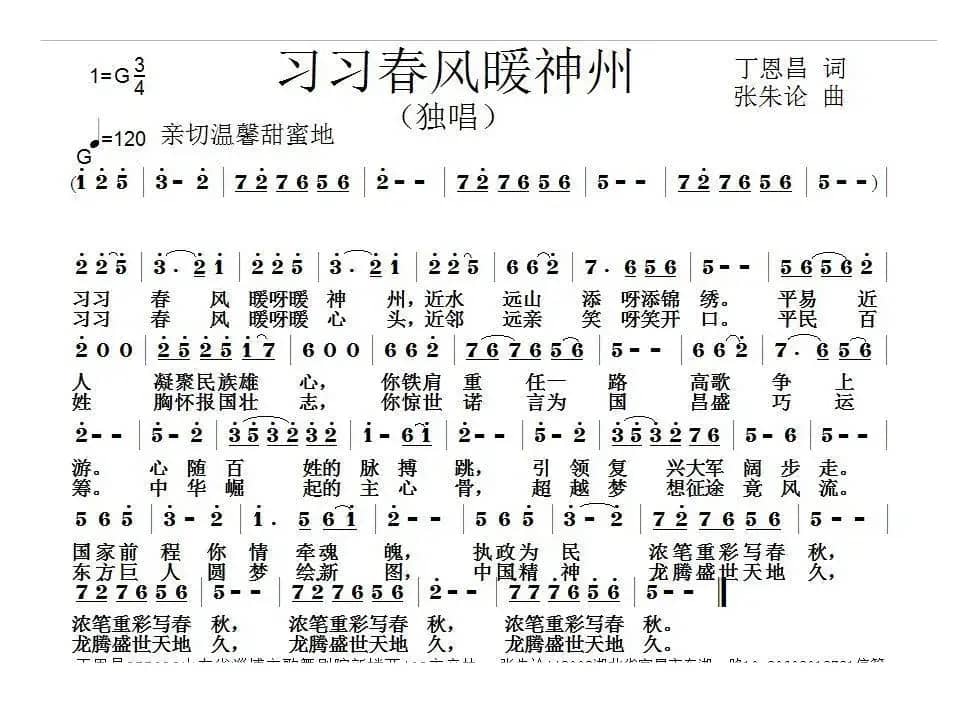 1=G 3/4
习习春风暖神州
丁恩昌 词
张朱论 曲
（独唱）
G ♩=120 亲切温馨甜蜜地
(1 2 5 | 3 - 2 | 7 2 7 6 5 6 | 2 - - | 7 2 7 6 5 6 | 5 - - | 7 2 7 6 5 6 | 5 - - ) |
2 2 5 | 3 . 2 1 | 2 2 5 | 3 . 2 1 | 2 2 5 | 6 6 2 | 7 . 6 5 6 | 5 - - | 5 6 5 6 2 |
习习 春 风 暖呀暖 神 州，近水 远山 添 呀添锦 绣。 平易 近
习习 春 风 暖呀暖 心 头，近邻 远亲 笑 呀笑开 口。 平民 百
2 0 0 | 2 5 2 5 1 7 | 6 0 0 | 6 6 2 | 7 6 7 6 5 6 | 5 - - | 6 6 2 | 7 . 6 5 6 |
人 凝聚民族雄 心， 你铁肩 重 任一 路 高歌 争 上
姓 胸怀报国壮 志， 你惊世 诺 言为 国 昌盛 巧 运
2 - - | 5 - 2 | 3 5 3 2 3 2 | 1 - 6 1 | 2 - - | 5 - 2 | 3 5 3 2 7 6 | 5 - 6 | 5 - - |
游。 心 随 百 姓的 脉 搏 跳， 引 领 复 兴大军 阔 步 走。
筹。 中 华 崛 起的 主 心 骨， 超 越 梦 想征途 竟 风 流。
5 6 5 | 3 - 2 | 1 . 5 6 1 | 2 - - | 5 6 5 | 3 - 2 | 7 2 7 6 5 6 | 5 - - |
国家前 程 你 情 牵魂 魄， 执政为 民 浓笔重彩写春 秋，
东方巨 人 圆 梦 绘新 图， 中国精 神 龙腾盛世天地 久，
7 2 7 6 5 6 | 5 - - | 7 2 7 6 5 6 | 2 - - | 7 7 7 6 5 6 | 5 - - ‖
浓笔重彩写春 秋， 浓笔重彩写春 秋， 浓笔重彩写春 秋。
龙腾盛世天地 久， 龙腾盛世天地 久， 龙腾盛世天地 久。